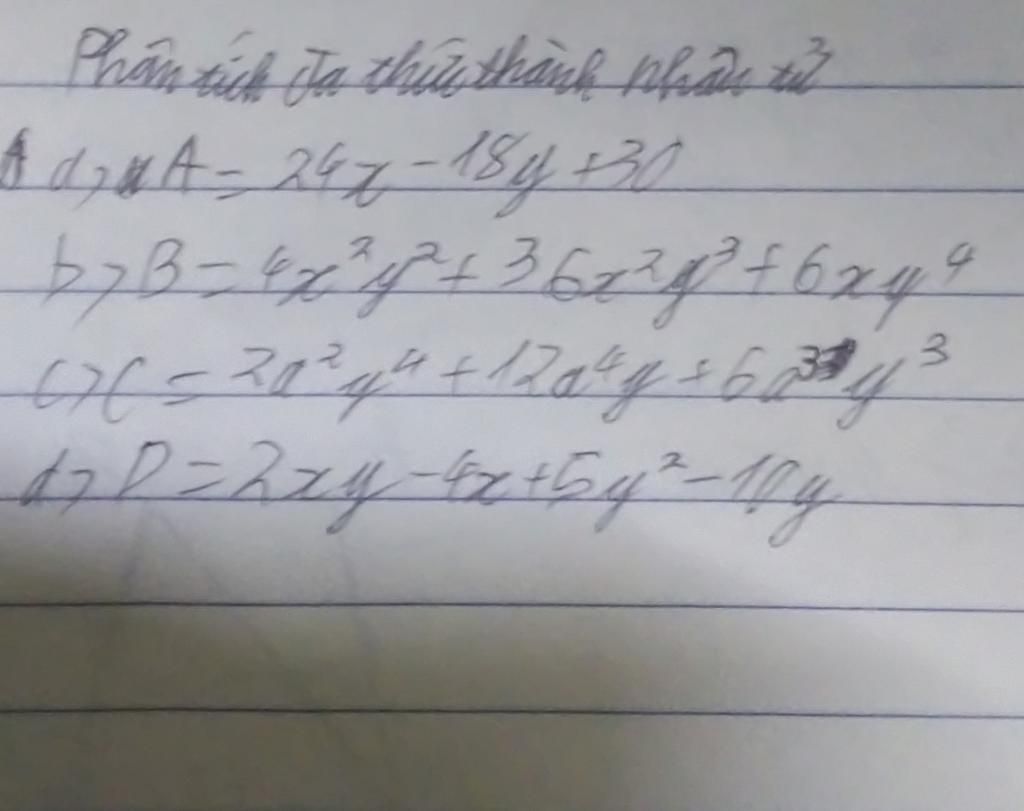 Phân tích đa thức thành nhân tử
a, A = 24x - 18y + 30
b, B = 4x²y² + 36x²y³ + 6xy⁴
c, C = 2a²y⁴ + 12a⁴y + 6a³y³
d, D = 2xy - 4x + 5y² - 10y